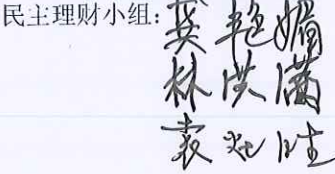 民主理财小组：龚艳媚
林洪满
袁灿胜